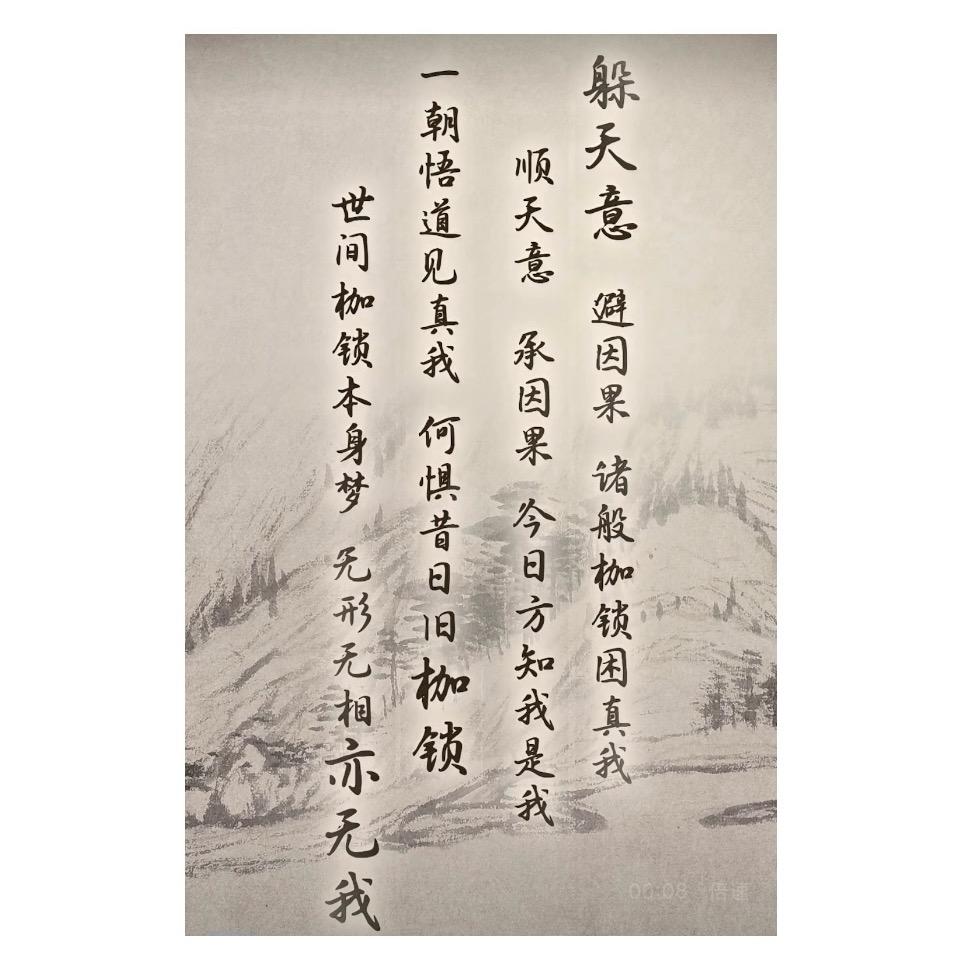 躲天意 避因果 诸般枷锁困真我
顺天意 承因果 今日方知我是我
一朝悟道见真我 何惧昔日旧枷锁
世间枷锁本身梦 无形无相亦无我
00:08 倍速